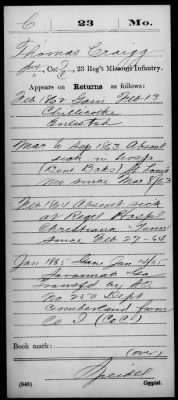 C 23 Mo.
Thomas Craigg
Pvt, Co. I, 23 Reg't Missouri Infantry.
Appears on Returns as follows:
Feb 1862 Gain Feb 13
Chillicothe
Enlisted
Mar to Sep 1863 Absent
sick in hosp
(Bent Bks) St Louis
Mo since Mar 8/63
Feb 1864 Absent sick
at Regtl Hospl
Christiana Tenn
since Feb 27-64
Jan 1865 Gain Jan 14/65
Savannah Ga
transfd by SO
No 250 Dept
Cumberland from
Co I (Co A)
Book mark:
(over)
Speidel
(546) Copyist.